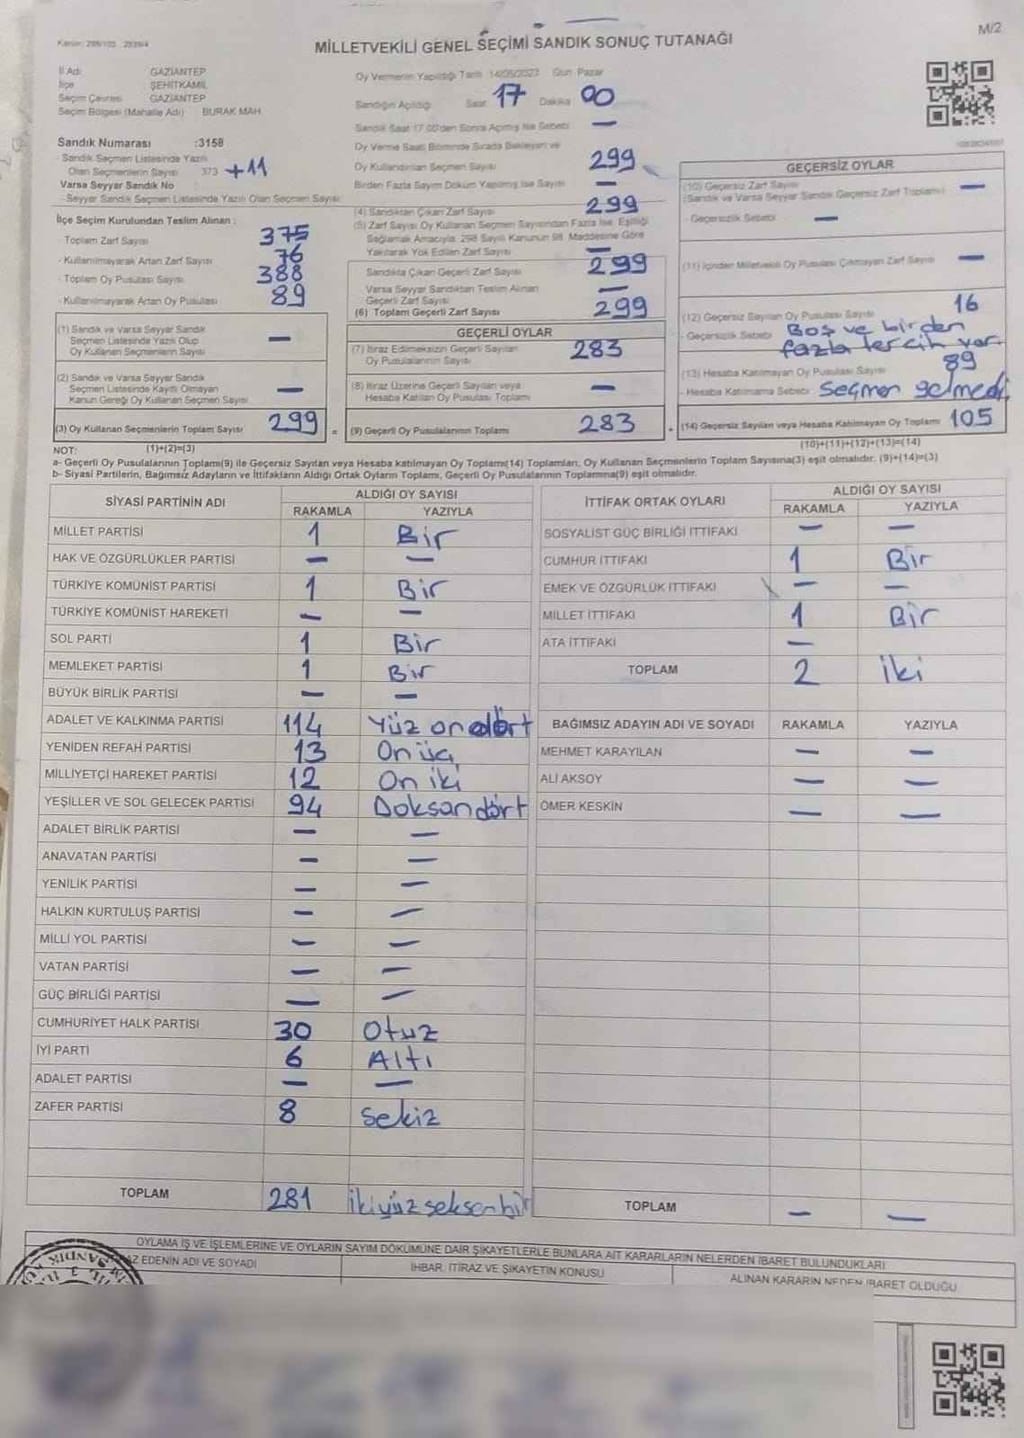 M/2
MİLLETVEKİLİ GENEL SEÇİMİ SANDIK SONUÇ TUTANAĞI
İl Adı GAZİANTEP
İlçe ŞEHİTKAMİL
Seçim Çevresi GAZİANTEP
Seçim Bölgesi (Mahalle Adı) BURAK MAH.
Oy Vermenin Yapıldığı Tarih 14/05/2023 Gün Pazar
Sandığın Açıldığı Saat 17 Dakika 00
Sandık Saat 17.00'den Sonra Açılmış İse Sebebi —
Sandık Numarası :3158
Sandık Seçmen Listesinde Yazılı
Olan Seçmenlerin Sayısı 373 +11
Varsa Seyyar Sandık No
Seyyar Sandık Seçmen Listesinde Yazılı Olan Seçmen Sayısı
Oy Verme Saati Bitiminde Sırada Bekleyen ve
Oy Kullandırılan Seçmen Sayısı 299
Birden Fazla Sayım Döküm Yapılmış İse Sayısı —
İlçe Seçim Kurulundan Teslim Alınan :
- Toplam Zarf Sayısı 375
- Kullanılmayarak Artan Zarf Sayısı 76
- Toplam Oy Pusulası Sayısı 388
- Kullanılmayarak Artan Oy Pusulası 89
(1) Sandık ve Varsa Seyyar Sandık
Seçmen Listesinde Yazılı Olup
Oy Kullanan Seçmenlerin Sayısı —
(2) Sandık ve Varsa Seyyar Sandık
Seçmen Listesinde Kayıtlı Olmayan
Kanun Gereği Oy Kullanan Seçmen Sayısı —
(3) Oy Kullanan Seçmenlerin Toplam Sayısı 299
(4) Sandıktan Çıkan Zarf Sayısı 299
(5) Zarf Sayısı Oy Kullanan Seçmen Sayısından Fazla İse, Eşitliği
Sağlamak Amacıyla 298 Sayılı Kanunun 98. Maddesine Göre
Yakılarak Yok Edilen Zarf Sayısı —
Sandıkta Çıkan Geçerli Zarf Sayısı 299
Varsa Seyyar Sandıktan Teslim Alınan
Geçerli Zarf Sayısı —
(6) Toplam Geçerli Zarf Sayısı 299
GEÇERLİ OYLAR
(7) İtiraz Edilmeksizin Geçerli Sayılan
Oy Pusulalarının Sayısı 283
(8) İtiraz Üzerine Geçerli Sayılan veya
Hesaba Katılan Oy Pusulası Toplamı —
= (9) Geçerli Oy Pusulalarının Toplamı 283
GEÇERSİZ OYLAR
(10) Geçersiz Zarf Sayısı
(Sandık ve Varsa Seyyar Sandık Geçersiz Zarf Toplamı) —
- Geçersizlik Sebebi —
(11) İçinden Milletvekili Oy Pusulası Çıkmayan Zarf Sayısı —
(12) Geçersiz Sayılan Oy Pusulası Sayısı 16
- Geçersizlik Sebebi Boş ve birden
fazla tercih var.
(13) Hesaba Katılmayan Oy Pusulası Sayısı 89
- Hesaba Katılmama Sebebi Seçmen gelmedi
(14) Geçersiz Sayılan veya Hesaba Katılmayan Oy Toplamı 105
NOT: (1)+(2)=(3) (10)+(11)+(12)+(13)=(14)
a- Geçerli Oy Pusulalarının Toplamı(9) ile Geçersiz Sayılan veya Hesaba Katılmayan Oy Toplamı(14) Toplamları, Oy Kullanan Seçmenlerin Toplam Sayısına(3) eşit olmalıdır. (9)+(14)=(3)
b- Siyasi Partilerin, Bağımsız Adayların ve İttifakların Aldığı Ortak Oyların Toplamı, Geçerli Oy Pusulalarının Toplamına(9) eşit olmalıdır.
SİYASİ PARTİNİN ADI ALDIĞI OY SAYISI
RAKAMLA YAZIYLA
MİLLET PARTİSİ 1 Bir
HAK VE ÖZGÜRLÜKLER PARTİSİ — —
TÜRKİYE KOMÜNİST PARTİSİ 1 Bir
TÜRKİYE KOMÜNİST HAREKETİ — —
SOL PARTİ 1 Bir
MEMLEKET PARTİSİ 1 Bir
BÜYÜK BİRLİK PARTİSİ — —
ADALET VE KALKINMA PARTİSİ 114 Yüz ondört
YENİDEN REFAH PARTİSİ 13 Onüç
MİLLİYETÇİ HAREKET PARTİSİ 12 On iki
YEŞİLLER VE SOL GELECEK PARTİSİ 94 Doksandört
ADALET BİRLİK PARTİSİ — —
ANAVATAN PARTİSİ — —
YENİLİK PARTİSİ — —
HALKIN KURTULUŞ PARTİSİ — —
MİLLİ YOL PARTİSİ — —
VATAN PARTİSİ — —
GÜÇ BİRLİĞİ PARTİSİ — —
CUMHURİYET HALK PARTİSİ 30 Otuz
İYİ PARTİ 6 Altı
ADALET PARTİSİ — —
ZAFER PARTİSİ 8 Sekiz
TOPLAM 281 ikiyüz seksen bir
İTTİFAK ORTAK OYLARI ALDIĞI OY SAYISI
RAKAMLA YAZIYLA
SOSYALİST GÜÇ BİRLİĞİ İTTİFAKI — —
CUMHUR İTTİFAKI 1 Bir
EMEK VE ÖZGÜRLÜK İTTİFAKI — —
MİLLET İTTİFAKI 1 Bir
ATA İTTİFAKI —
TOPLAM 2 iki
BAĞIMSIZ ADAYIN ADI VE SOYADI RAKAMLA YAZIYLA
MEHMET KARAYILAN — —
ALİ AKSOY — —
ÖMER KESKİN — —
TOPLAM — —
OYLAMA İŞ VE İŞLEMLERİNE VE OYLARIN SAYIM DÖKÜMÜNE DAİR ŞİKAYETLERLE BUNLARA AİT KARARLARIN NELERDEN İBARET BULUNDUKLARI
EDENİN ADI VE SOYADI İHBAR, İTİRAZ VE ŞİKAYETİN KONUSU ALINAN KARARIN NEDEN İBARET OLDUĞU